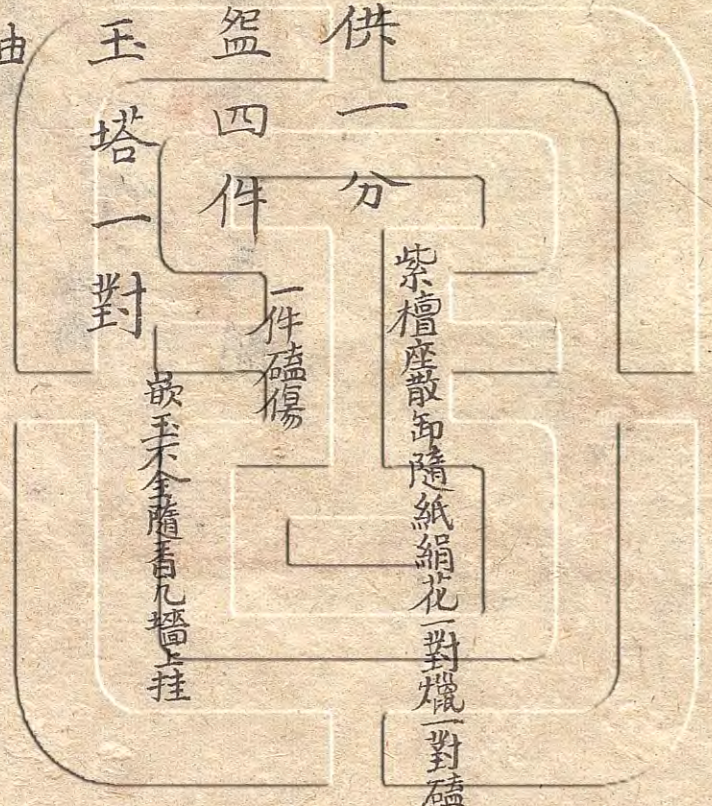 供一分
紫檀座散卸隨紙絹花一對爉一對磕
盌四件
一件磕傷
玉塔一對
嵌玉不全隨香几墻上挂